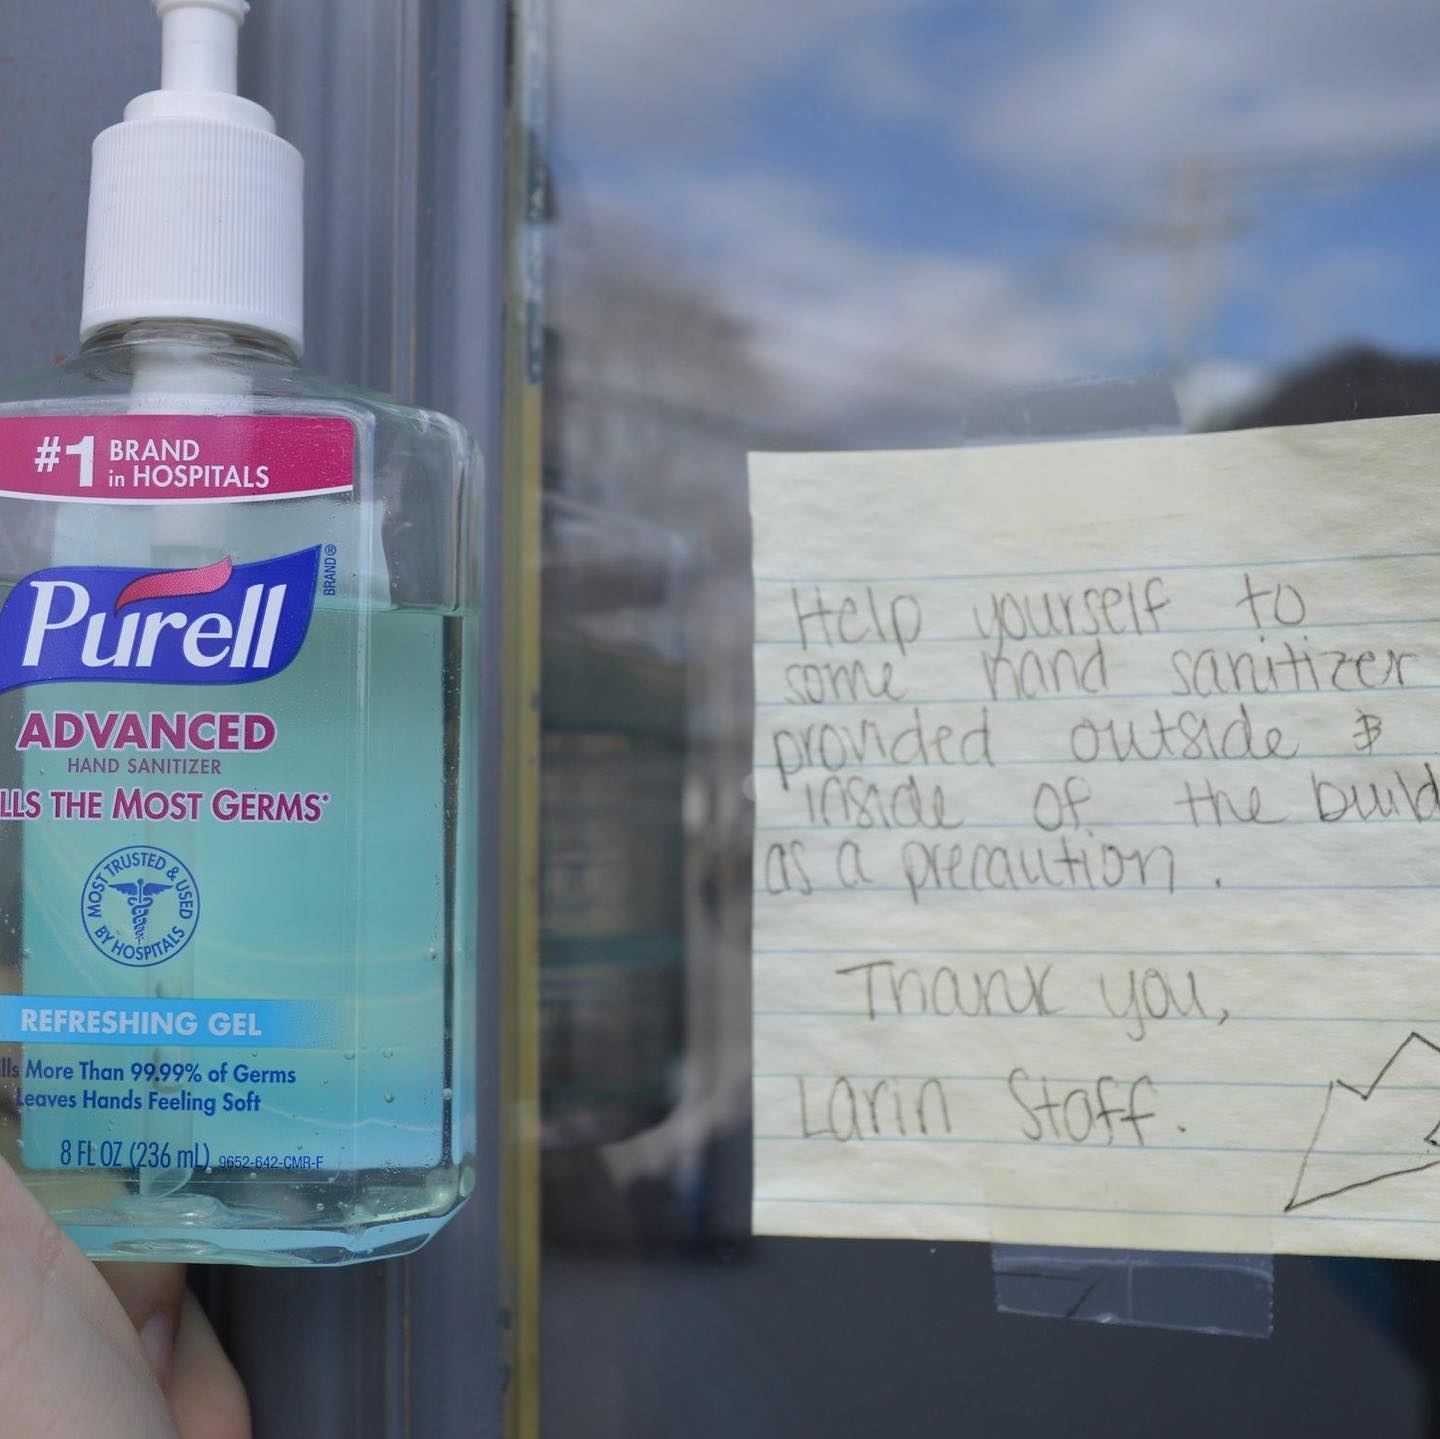 #1 BRAND
in HOSPITALS
Purell
BRAND®
ADVANCED
HAND SANITIZER
LLS THE MOST GERMS*
MOST TRUSTED & USED
BY HOSPITALS
REFRESHING GEL
lls More Than 99.99% of Germs
Leaves Hands Feeling Soft
8 FL OZ (236 mL) 9652-642-CMR-F
Help yourself to
some hand sanitizer
provided outside &
inside of the build
as a precaution.
Thank you,
Larin Staff.